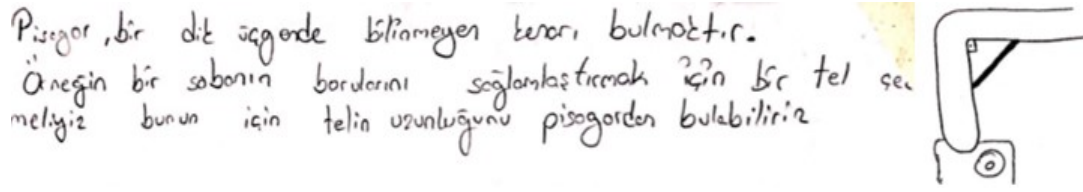 Pisagor, bir dik üçgende bilinmeyen kenarı bulmaktır.
Örneğin bir sobanın borularını sağlamlaştırmak için bir tel çek
meliyiz bunun için telin uzunluğunu pisagordan bulabiliriz